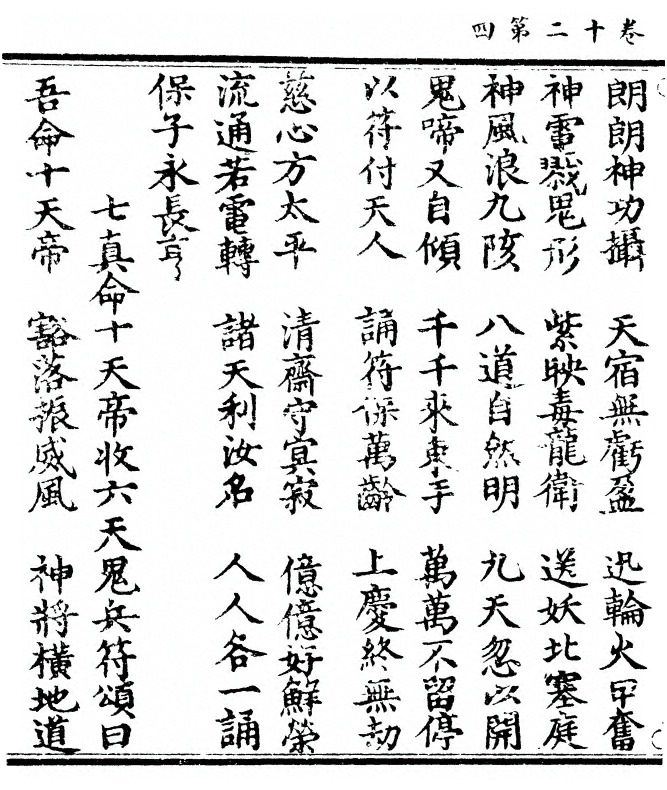 卷十二第四
朗朗神功攝　天宿無虧盈　迅輪火田奮
神雷戮鬼形　紫映毒龍衛　送妖北塞庭
神風浪九陔　八道自然明　九天忽以開
鬼啼又自傾　千千來束手　萬萬不留停
以符付天人　誦符保萬齡　上慶終無劫
慈心方太平　清齋守寘寂　億億好鮮榮
流通若電轉　諸天利汝名　人人各一誦
保子永長亨
七真命十天帝收六天鬼兵符頌曰
吾命十天帝　豁落振威風　神將橫地道